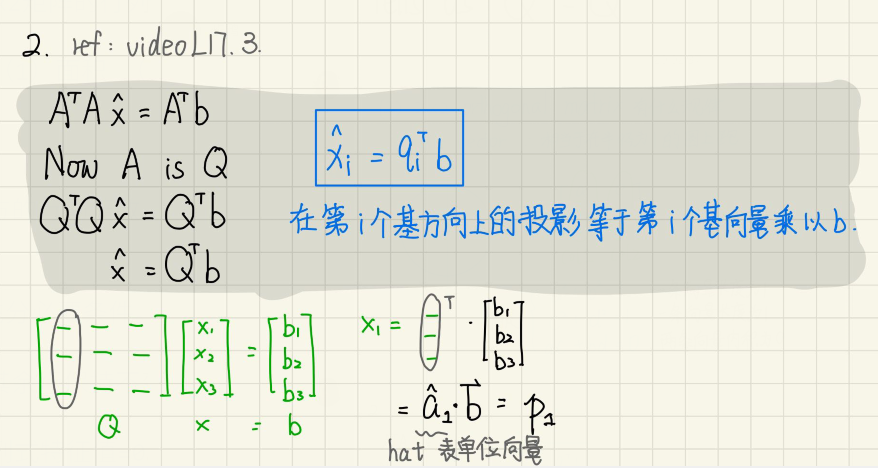 2. ref: video L17.3.
AᵀA x̂ = Aᵀb
Now A is Q
QᵀQ x̂ = Qᵀb
x̂ = Qᵀb
x̂ᵢ = qᵢᵀ b
在第 i 个基方向上的投影等于第 i 个基向量乘以 b.
[– – –] [x₁] = [b₁]
[– – –] [x₂] = [b₂]
[– – –] [x₃] = [b₃]
Q x = b
x₁ = [–]ᵀ · [b₁]
[–] [b₂]
[–] [b₃]
= â₁·b⃗ = p₁
hat 表单位向量